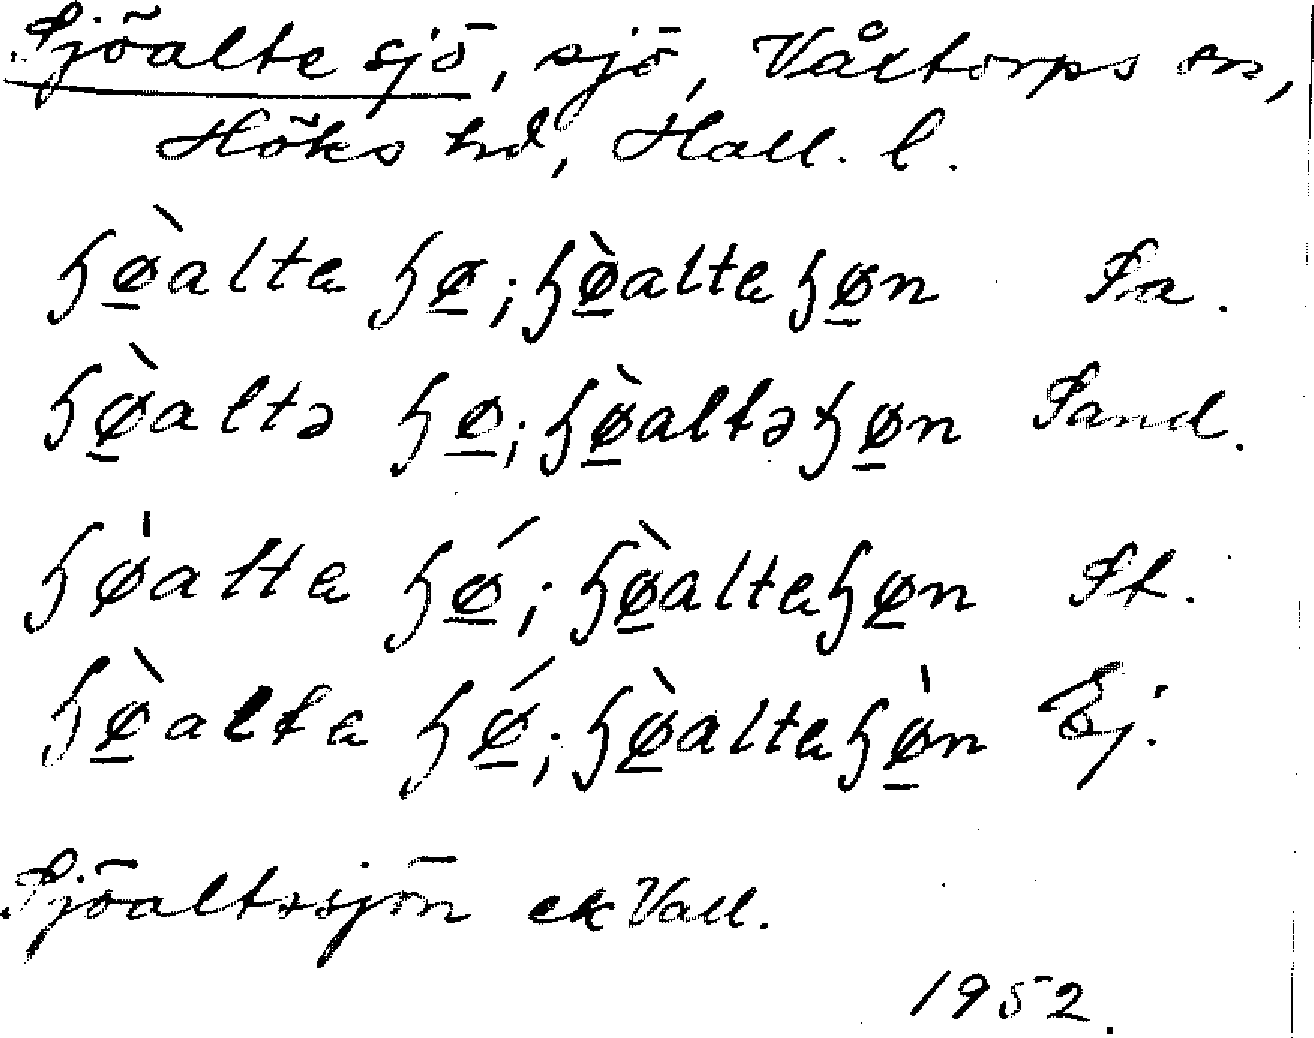 Sjöalte sjö, sjö, Våxtorps sn,
Höks hd, Hall. l.
ɧø̠̀alta ɧø̠; ɧø̠̀altaɧø̠n Sa.
ɧø̠̀altə ɧø̠; ɧø̠̀altəɧø̠n Sand.
ɧø̍alta ɧǿ̠; ɧø̠̀altaɧø̠n St.
ɧø̠̀alta ɧǿ̠; ɧø̠̀altaɧø̠̀n Ej.
Sjöaltesjön ek Vall.
1952.